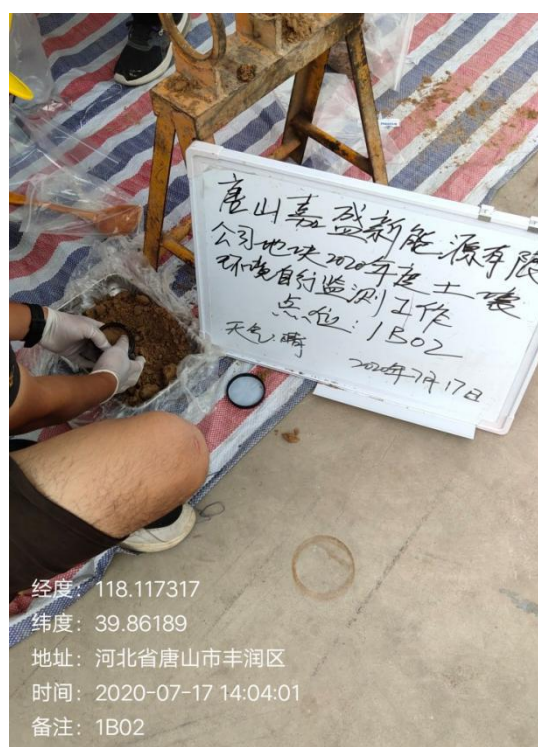 唐山嘉盛新能源有限
公司地块2020年度土壤
环境自行监测工作
点位：1B02
天气：晴
2020年7月17日
经度：118.117317
纬度：39.86189
地址：河北省唐山市丰润区
时间：2020-07-17 14:04:01
备注：1B02